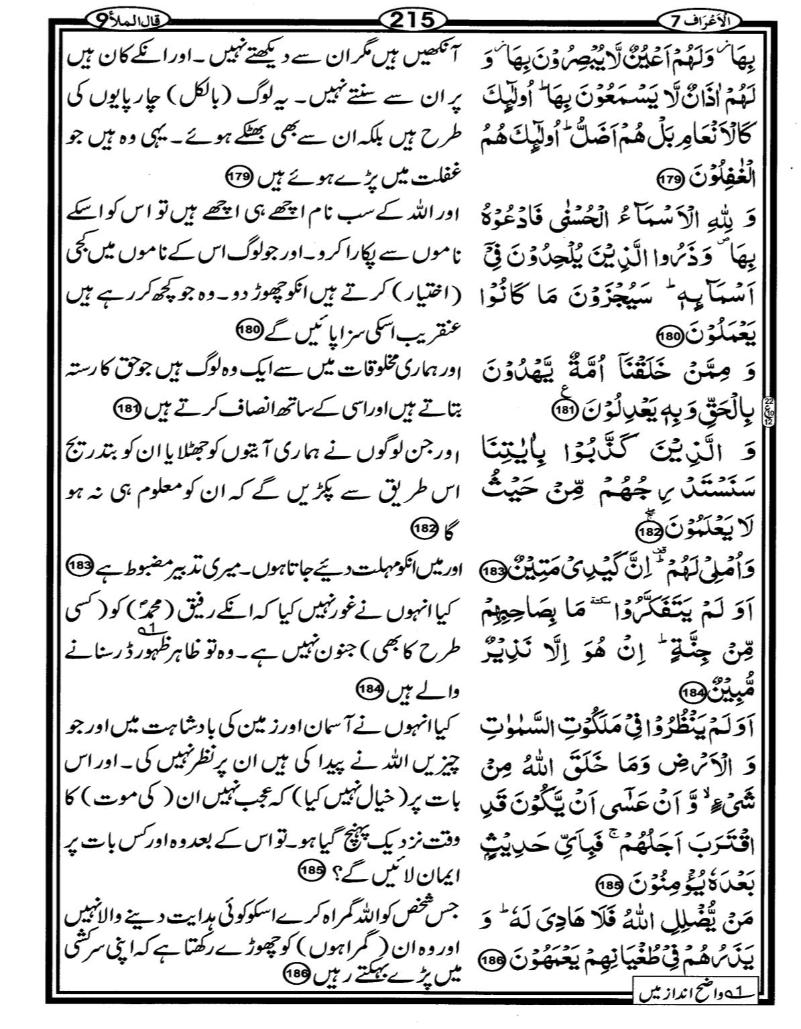 الاعراف 7
215
قال الملأ 9
بِهَا ۫ وَلَهُمْ اَعْيُنٌ لَّا يُبْصِرُوْنَ بِهَا ۫ وَ
لَهُمْ اٰذَانٌ لَّا يَسْمَعُوْنَ بِهَا ؕ اُولٰٓئِكَ
كَالْاَنْعَامِ بَلْ هُمْ اَضَلُّ ؕ اُولٰٓئِكَ هُمُ
الْغٰفِلُوْنَ 179
وَ لِلّٰهِ الْاَسْمَآءُ الْحُسْنٰى فَادْعُوْهُ
بِهَا ۪ وَذَرُوا الَّذِيْنَ يُلْحِدُوْنَ فِيْٓ
اَسْمَآىِٕهٖ ؕ سَيُجْزَوْنَ مَا كَانُوْا
يَعْمَلُوْنَ 180
وَ مِمَّنْ خَلَقْنَآ اُمَّةٌ يَّهْدُوْنَ
بِالْحَقِّ وَبِهٖ يَعْدِلُوْنَ 181 ع
وَ الَّذِيْنَ كَذَّبُوْا بِاٰيٰتِنَا
سَنَسْتَدْرِجُهُمْ مِّنْ حَيْثُ
لَا يَعْلَمُوْنَ 182
وَاُمْلِيْ لَهُمْ ۫ اِنَّ كَيْدِيْ مَتِيْنٌ 183
اَوَ لَمْ يَتَفَكَّرُوْا ٚ مَا بِصَاحِبِهِمْ
مِّنْ جِنَّةٍ ؕ اِنْ هُوَ اِلَّا نَذِيْرٌ
مُّبِيْنٌ 184
اَوَلَمْ يَنْظُرُوْا فِيْ مَلَكُوْتِ السَّمٰوٰتِ
وَ الْاَرْضِ وَمَا خَلَقَ اللّٰهُ مِنْ
شَيْءٍ ۙ وَّ اَنْ عَسٰٓى اَنْ يَّكُوْنَ قَدِ
اقْتَرَبَ اَجَلُهُمْ ۚ فَبِاَيِّ حَدِيْثٍۭ
بَعْدَهٗ يُؤْمِنُوْنَ 185
مَنْ يُّضْلِلِ اللّٰهُ فَلَا هَادِيَ لَهٗ ؕ وَ
يَذَرُهُمْ فِيْ طُغْيَانِهِمْ يَعْمَهُوْنَ 186
آنکھیں ہیں مگر ان سے دیکھتے نہیں۔ اور انکے کان ہیں
پر ان سے سنتے نہیں۔ یہ لوگ (بالکل) چار پایوں کی
طرح ہیں بلکہ ان سے بھی بھٹکے ہوئے۔ یہی وہ ہیں جو
غفلت میں پڑے ہوئے ہیں 179
اور اللہ کے سب نام اچھے ہی اچھے ہیں تو اس کو اسکے
ناموں سے پکارا کرو۔ اور جو لوگ اس کے ناموں میں کجی
(اختیار) کرتے ہیں انکو چھوڑ دو۔ وہ جو کچھ کر رہے ہیں
عنقریب اسکی سزا پائیں گے 180
اور ہماری مخلوقات میں سے ایک وہ لوگ ہیں جو حق کا رستہ
بتاتے ہیں اور اسی کے ساتھ انصاف کرتے ہیں 181
اور جن لوگوں نے ہماری آیتوں کو جھٹلایا ان کو بتدریج
اس طریق سے پکڑیں گے کہ ان کو معلوم ہی نہ ہو
گا 182
اور میں انکو مہلت دیئے جاتا ہوں۔ میری تدبیر مضبوط ہے 183
کیا انہوں نے غور نہیں کیا کہ انکے رفیق (محمدؐ) کو (کسی
طرح کا بھی) جنون نہیں ہے۔ وہ تو ظاہر ظہور 1؎ ڈر سنانے
والے ہیں 184
کیا انہوں نے آسمان اور زمین کی بادشاہت میں اور جو
چیزیں اللہ نے پیدا کی ہیں ان پر نظر نہیں کی۔ اور اس
بات پر (خیال نہیں کیا) کہ عجب نہیں ان (کی موت) کا
وقت نزدیک پہنچ گیا ہو۔ تو اس کے بعد وہ اور کس بات پر
ایمان لائیں گے؟ 185
جس شخص کو اللہ گمراہ کرے اسکو کوئی ہدایت دینے والا نہیں
اور وہ ان (گمراہوں) کو چھوڑے رکھتا ہے کہ اپنی سرکشی
میں پڑے بہکتے رہیں 186
1؎ واضح انداز میں